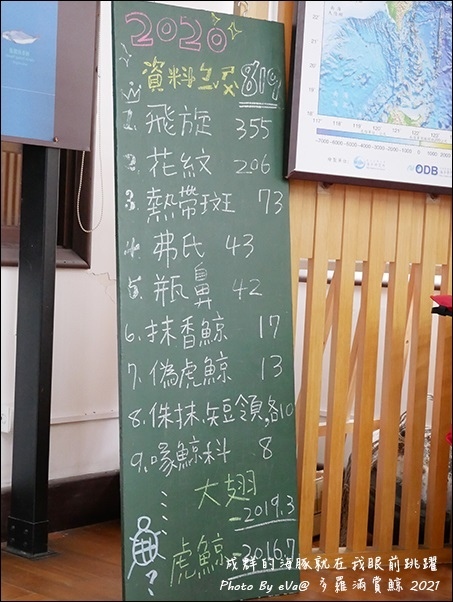 2020
資料ㄅㄡˇ 819
1. 飛旋 355
2. 花紋 206
3. 熱帶斑 73
4. 弗氏 43
5. 瓶鼻 42
6. 抹香鯨 17
7. 偽虎鯨 13
8. 侏抹.短領,各10
9. 喙鯨科 8
大翅
-2019.3
虎鯨 -2016.7
?
ODB
成群的海豚就在我眼前跳躍
Photo By eVa@ 多羅滿賞鯨 2021